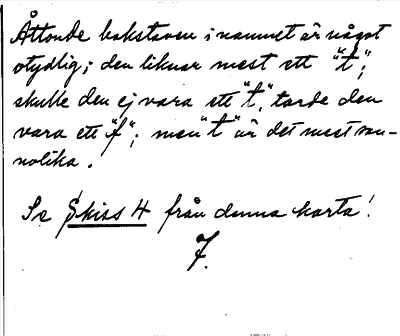 Åttonde bokstaven i namnet är något
otydlig; den liknar mest ett "t";
skulle den ej vara ett "t", torde den
vara ett "f"; men "t" är det mest san-
nolika.
Se Skiss 4 från denna karta!
7.